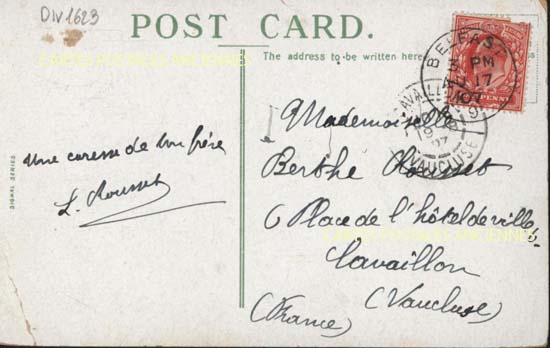 DIV 1623
POST CARD.
CARTES POSTALES ANCIENNES
The address to be written here
BELFAST
3 PM
17
07
PENNY
CAVAILLON
9
07
VAUCLUSE
Mademoiselle
Berthe Rousset
6 Place de l'hôtel de ville
CARTES POSTALES ANCIENNES
Cavaillon
(Vaucluse)
(France)
Une caresse de ton frère
L. Rousset
SIGNAL SERIES